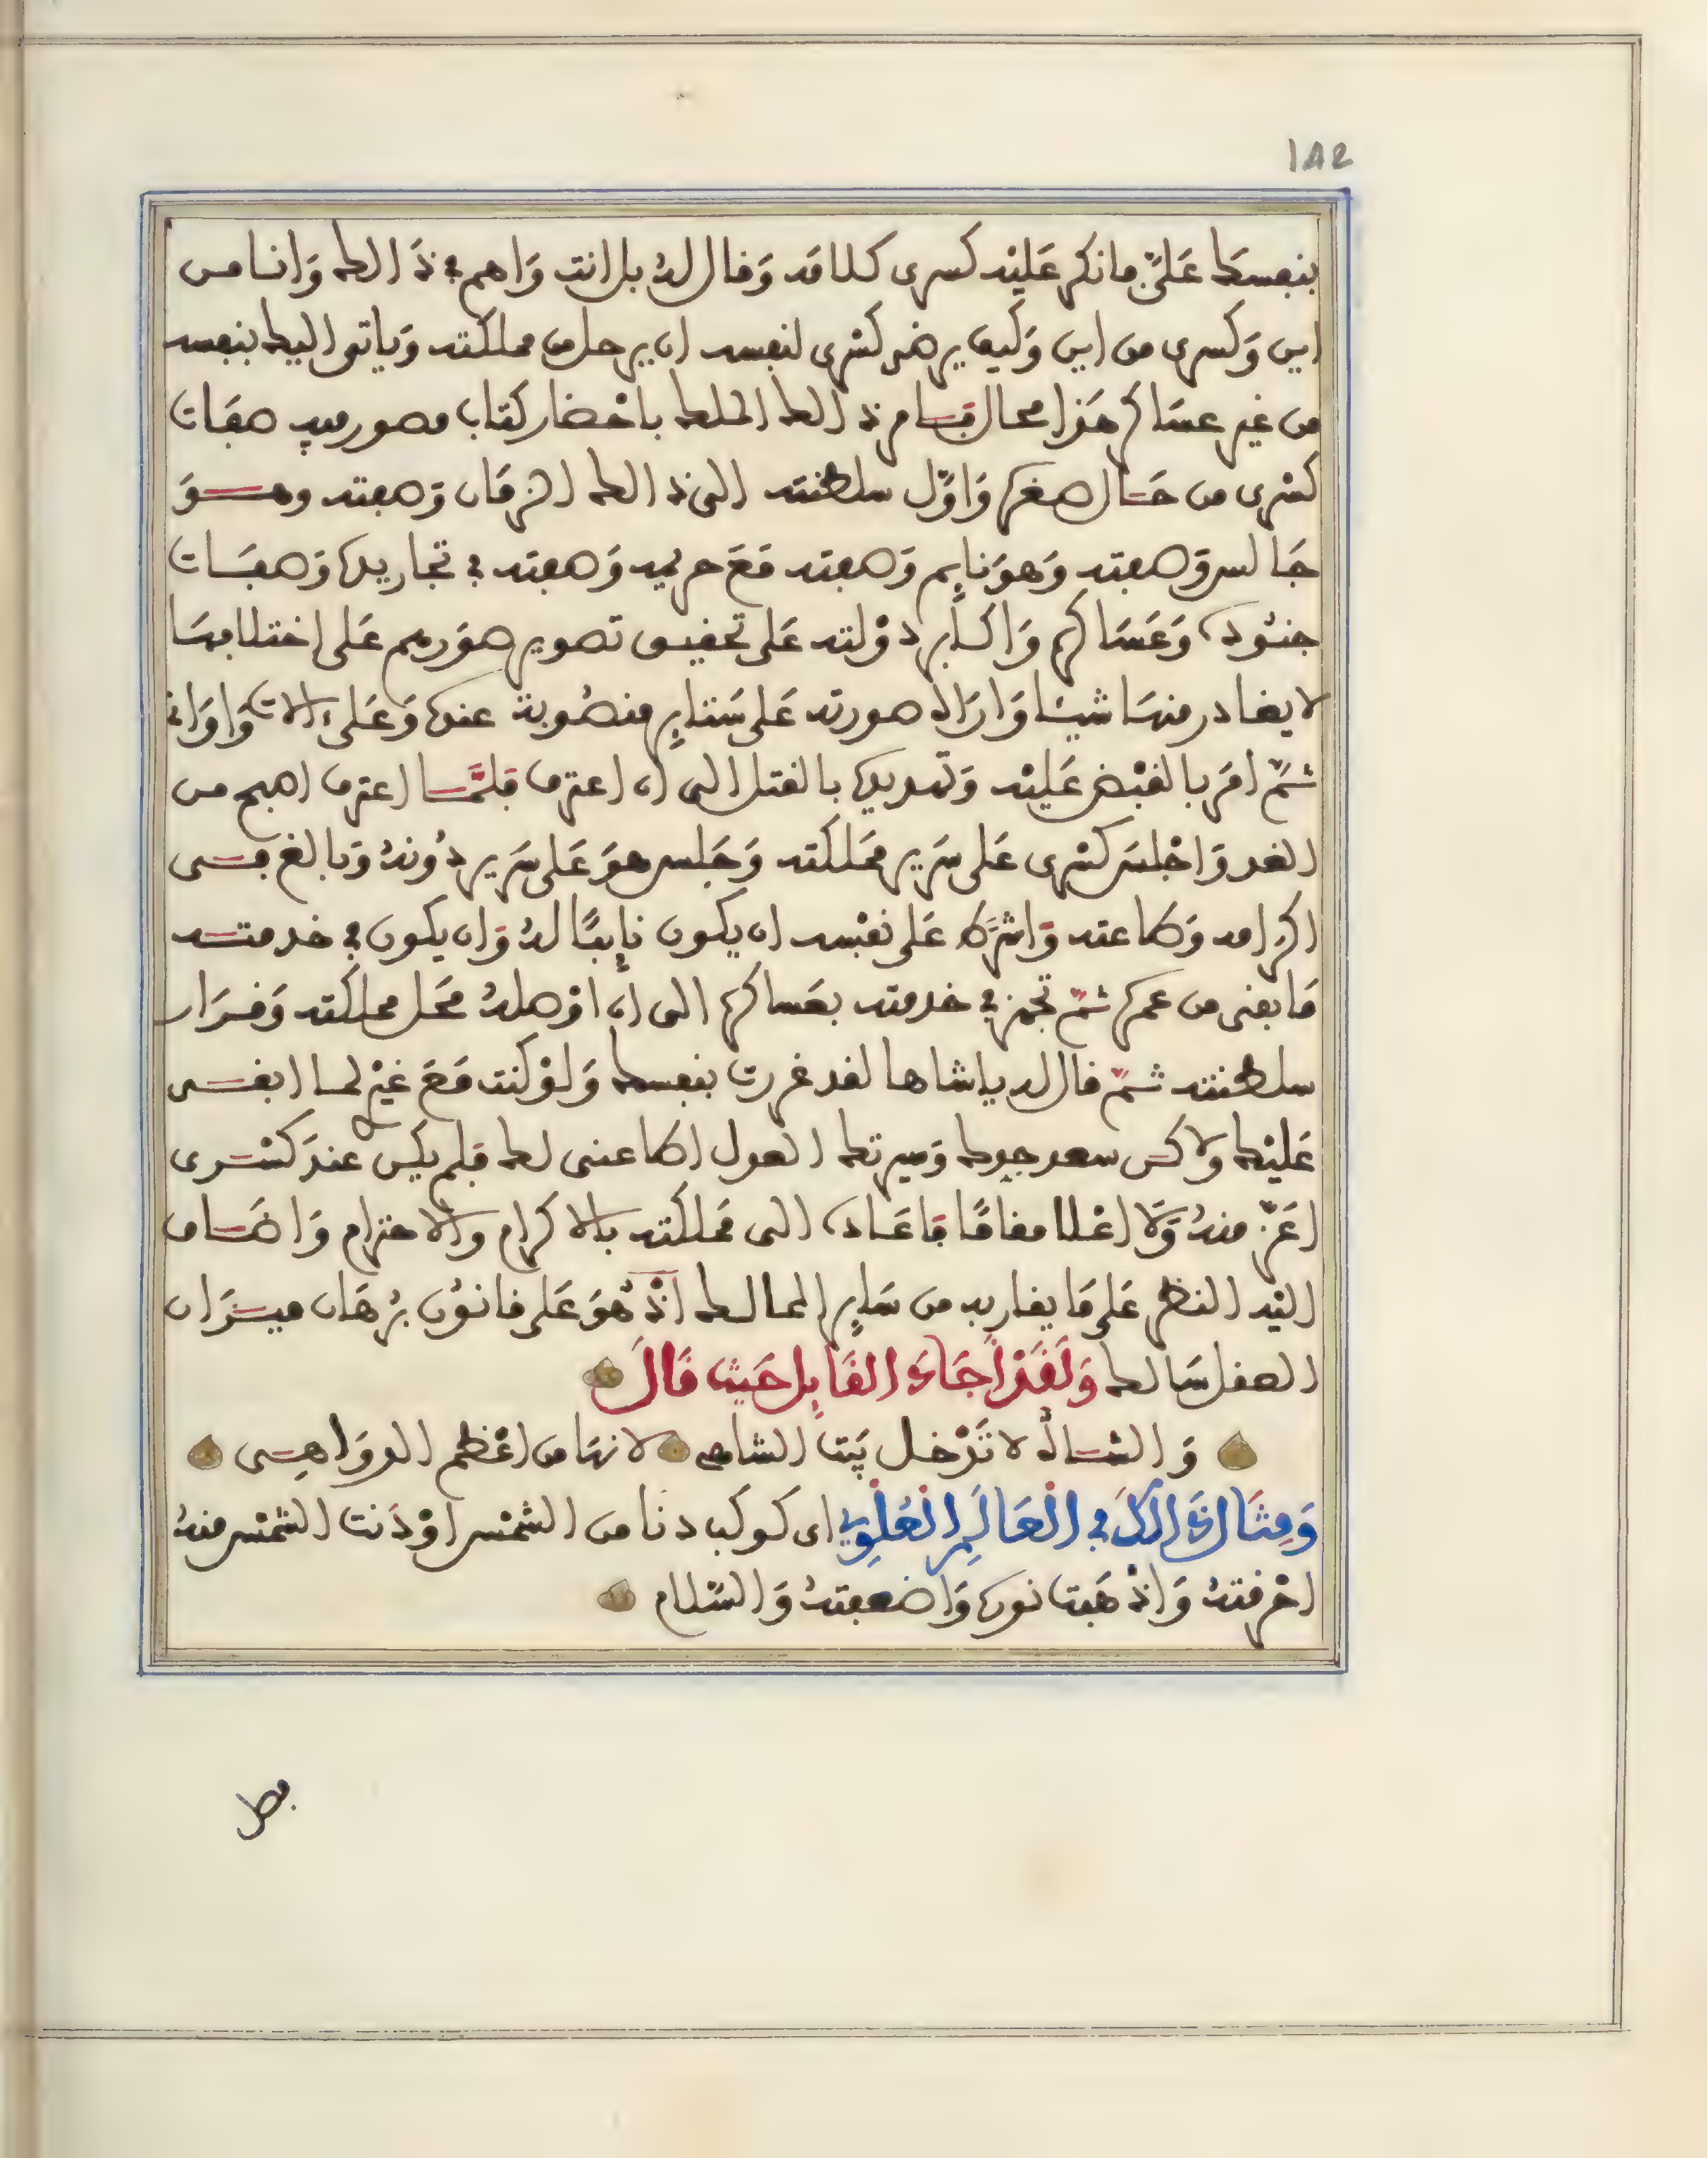 182
بنفسك عَليّ فانكر عَليْه كسرى كلامَه وَقال لهُ بل انت وَاهم في ذَالك وَانا من
اين وَكسرى من اين وَكيف يرضى كسْرى لنفسه ان يرحل من مملكته وَياتي اليك بنفسه
من غير عسَاكر هَذا محال فامر ذالك الملك باحْضار كتاب مصور فيه صفَات
كسْرى من حَال صغره وَاوّل سلطنته الى ذالك الزمَان وَصفته وهوَ
جَالس وَصفته وَهوَ نايم وَصفته مَعَ حريمه وَصفته في تجاريده وَصفَات
جنُوده وَعَسَاكره وَاكابر دوْلته عَلى تحقيق تصوير صوَرهم عَلى اختلافهَا
لا يغادر منهَا شيئا وَارَاهُ صورته عَلى سَتاير منصُوبة عنده وَعَلى ءالات وَاوَاني
ثمّ امَر بالقبْض عَليْه وَتهديده بالقتل الى ان اعترف فلمَّا اعترف اصبح من
الغد وَاجْلسَ كسْرى عَلى سَرير ممَلكته وَجَلس هوَ عَلى سَرير دُونهُ وَبالغ في
اكرامه وَطاعته وَاشترَط عَلى نفْسه ان يكون نايبًا لهُ وَان يكون في خدمته
مَا بقى من عمره ثمّ تجهز في خدمته بعَساكره الى ان اوْصلهُ محَل مملكته وَقرَار
سلطنته ثمّ قال له ياشاها لقد غررت بنفسك وَلوْ كنت مَعَ غيْرى لما ابقى
عَليْك ولاكن سعد جدك وَسيرتك العدل اطاعنى لك فلم يكن عندَ كسْرى
اعَزّ منهُ وَلا اعْلا مقامًا فاعَاده الى مَملكته بالاكرام والاحترام وَاضَاف
اليْه النظر عَلى مَا يقاربه من سَاير الممالك اذْ هُوَ عَلى قانوُن بُرهَان ميزَان
العقل سَالك وَلَقَدْ اجَادَ القَايِل حَيْث قَالَ
وَالشاهُ لا تَدْخل بَيْت الشاه لانهَا من اعْظم الدوَاهِى
وَمِثَال ذَالِكَ في الْعَالَمِ الْعُلْوِي اى كوكب دنا من الشمْس اوْ دَنت الشمْس منهُ
احْرقتهُ وَاذْهَبت نوره وَاضعفتهُ وَالسَّلام
فصل